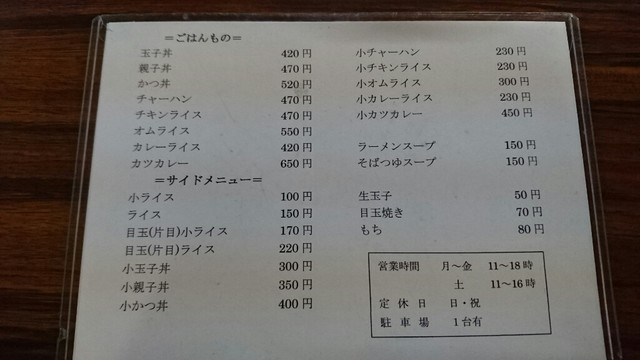 ＝ごはんもの＝
玉子丼 420円
親子丼 470円
かつ丼 520円
チャーハン 470円
チキンライス 470円
オムライス 550円
カレーライス 420円
カツカレー 650円
＝サイドメニュー＝
小ライス 100円
ライス 150円
目玉(片目)小ライス 170円
目玉(片目)ライス 220円
小玉子丼 300円
小親子丼 350円
小かつ丼 400円
小チャーハン 230円
小チキンライス 230円
小オムライス 300円
小カレーライス 230円
小カツカレー 450円
ラーメンスープ 150円
そばつゆスープ 150円
生玉子 50円
目玉焼き 70円
もち 80円
営業時間 月～金 11～18時
土 11～16時
定休日 日・祝
駐車場 1台有